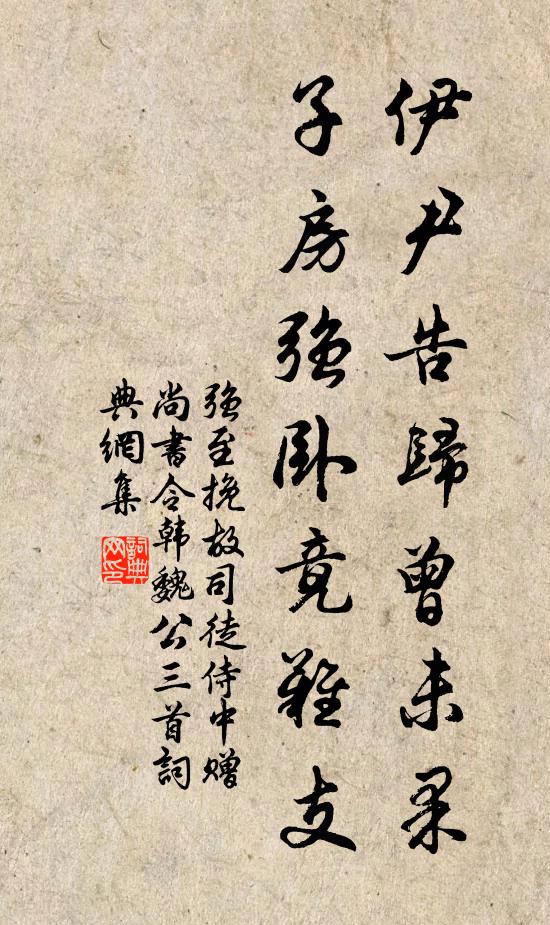 伊尹告歸曾未果
子房強卧竟難支
強至挽故司徒侍中赠
尚書令韩魏公三首詞
典網集
詞典网印